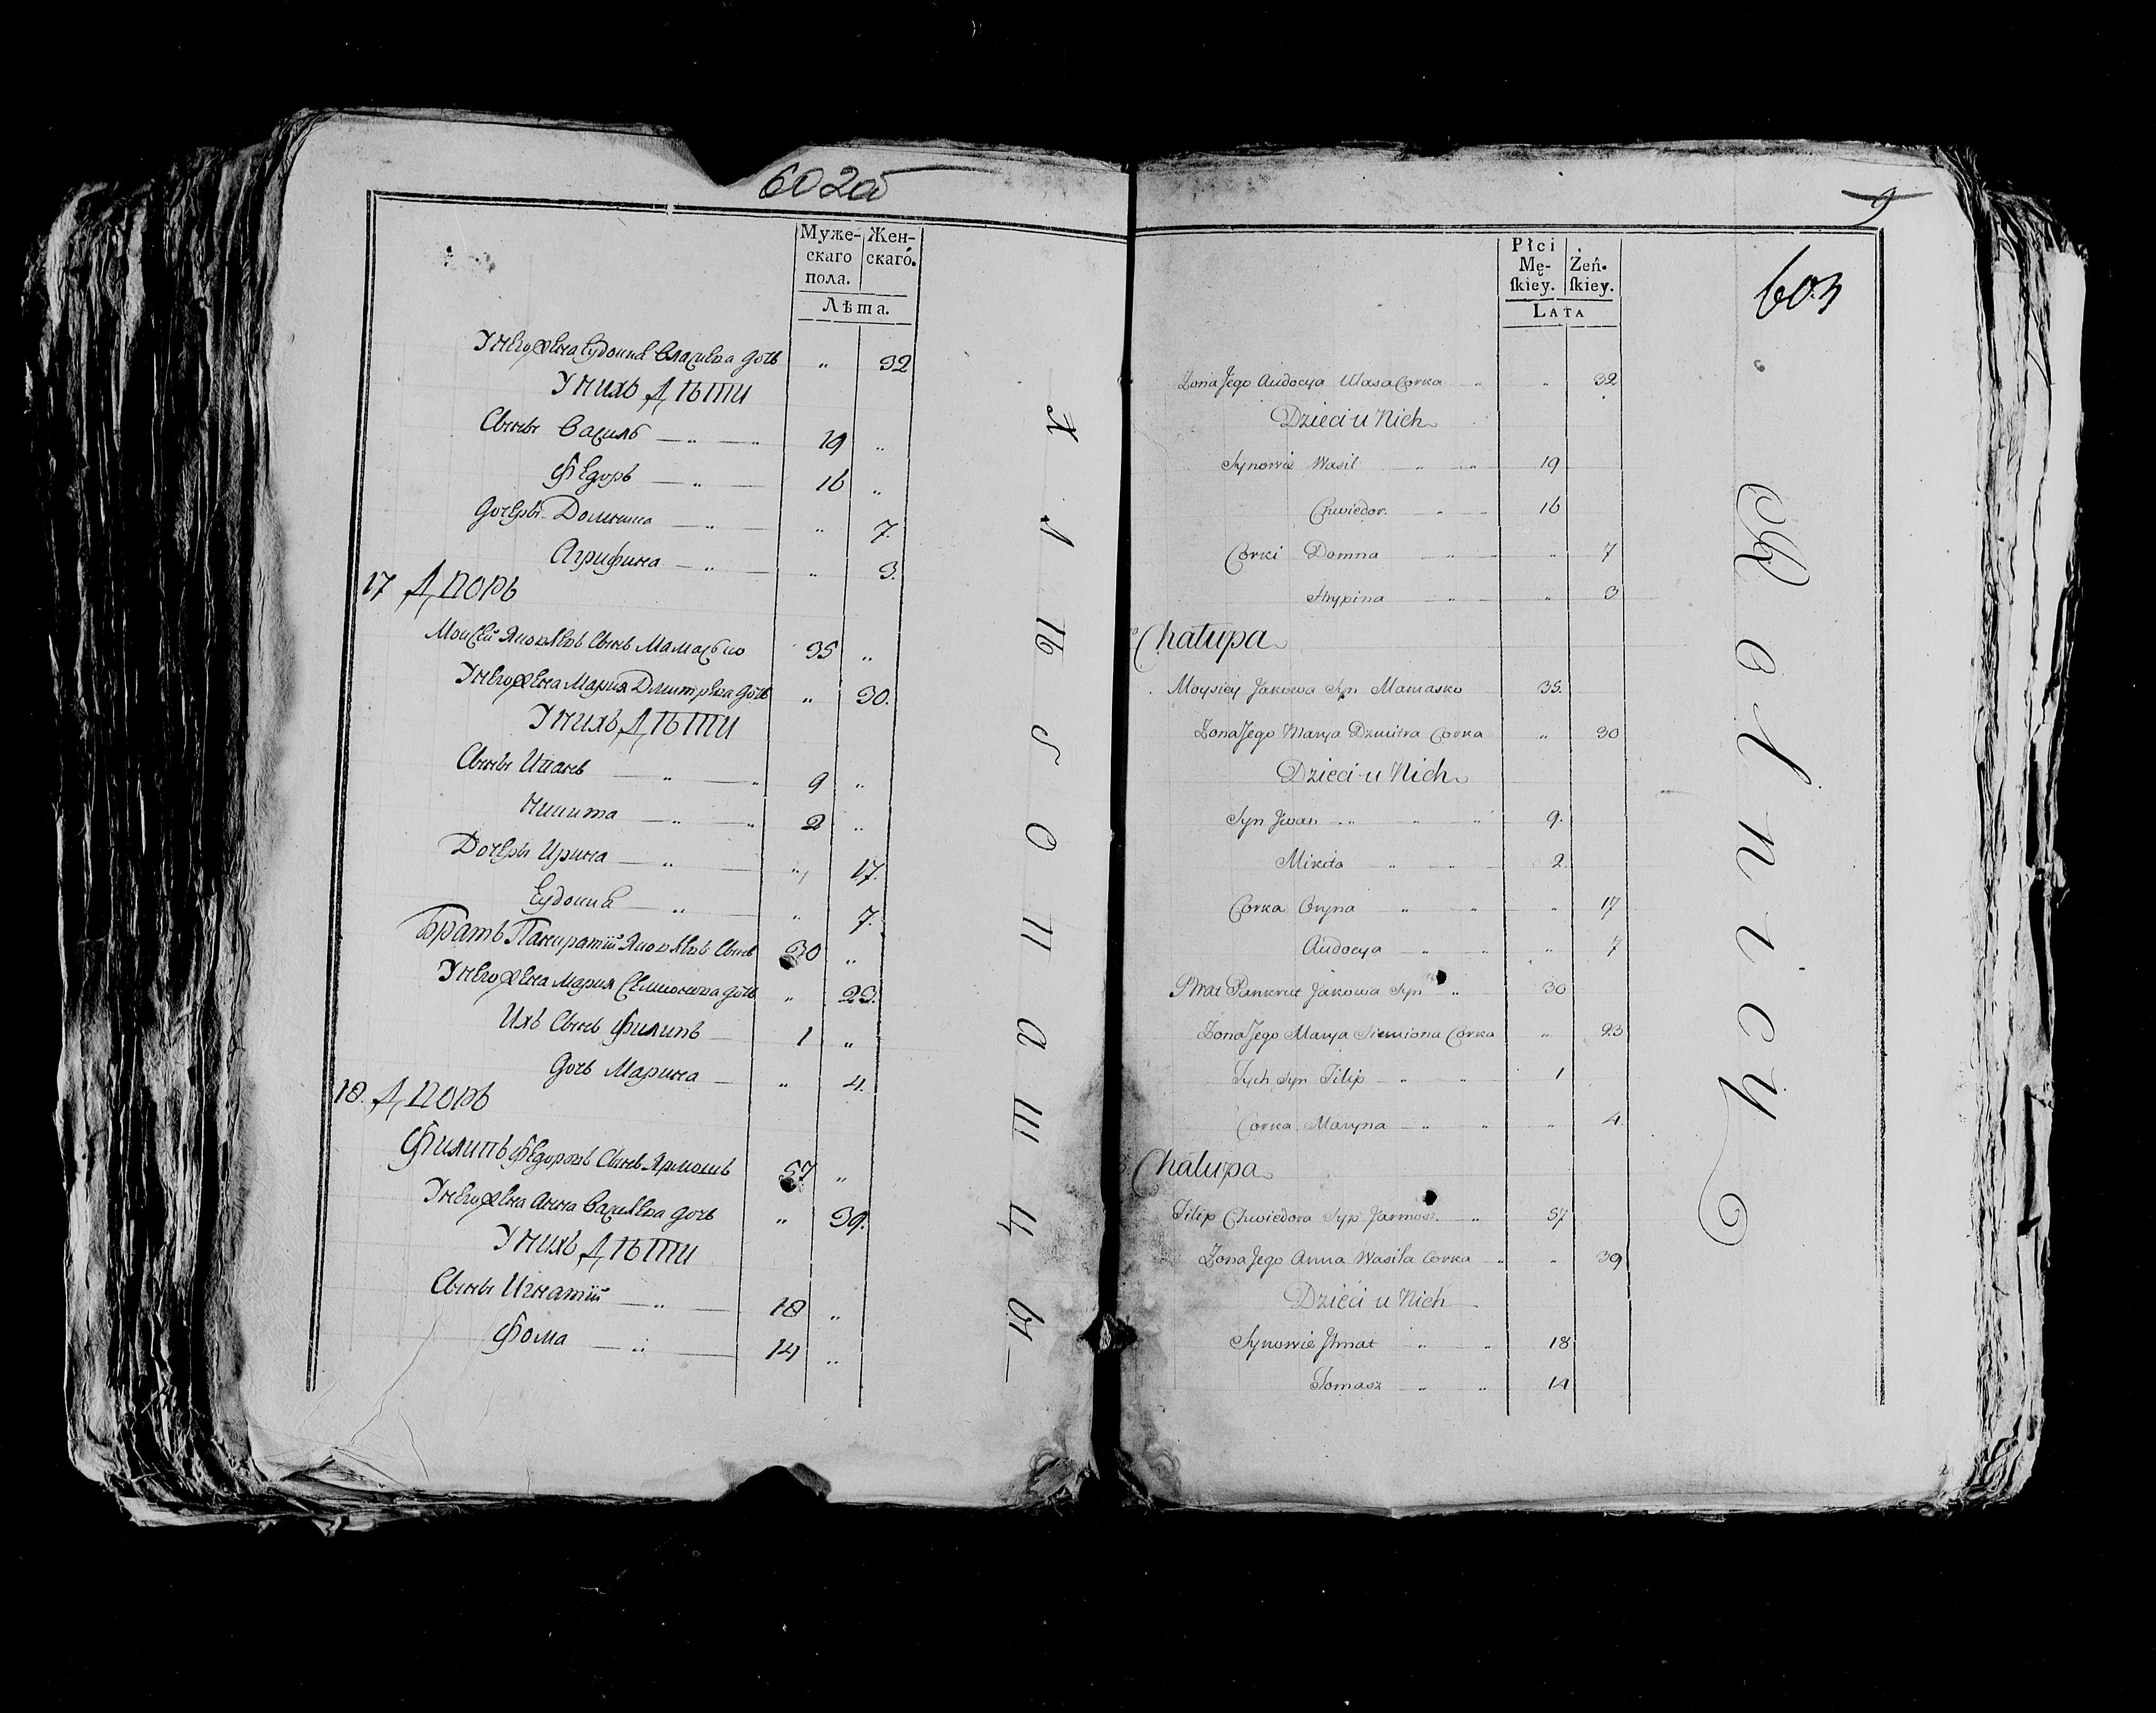 602а
Муже- Жен-
скаго скаго.
пола.
Лѣта.
У него жена Еудокиѣ Власиева дочь „ 32
У нихъ Дѣти
Сыны Василь — „ — „ 19 „
Федоръ — „ — 16 „
Дочеры Домника — „ — „ 7.
Агрифина — „ — „ 3.
17 Дворъ
Моисей Яковлевъ Сынъ Мамасько 35 „
У него жена Мария Дмитрева дочь „ 30.
У нихъ Дѣти
Сыны Иванъ — „ — „ 9 „
Никита — „ — „ 2 „
Дочеры Ирина — „ — „ 17.
Еудокиѣ — „ — „ 7.
Братъ Панкратiй Яковлевъ Сынъ 30 „
У него жена Мария Семионова дочь „ 23.
Ихъ Сынъ Филипъ — 1 „
Дочь Марина — „ 4.
18. Дворъ
Филипъ Федоровъ Сынъ Ярмошъ 57 „
У него жена Анна Василева дочь „ 39.
У нихъ Дѣти
Сыны Игнатiй — „ — 18 „
Фома — „ — 14 „
Хлѣбопашцы
9
603
Płci
Mę- Żeń-
ſkiey. ſkiey.
LATA
Żona Jego Audocya Własa Corka „ „ 32
Dzieci u Nich
Synowie Wasil „ „ 19
Chwiedor. „ 16
Corki Domna „ „ 7
Ahrypina „ „ 3
Chałupa
Moysiey Jakowa Syn Mamasko 35.
Żona Jego Marya Dzmitra Corka „ 30
Dzieci u Nich
Syn Jwan „ „ „ 9.
Mikita „ „ 2.
Corka Oryna „ „ „ 17
Audocya „ „ „ 7
Brat Pankrat Jakowa Syn „ 30
Żona Jego Marya Siemiona Corka „ 23
Tych Syn Filip „ „ 1
Corka Maryna „ „ „ 4
Chałupa
Filip Chwiedora Syn Jarmosz „ 57
Żona Jego Anna Wasila Corka „ „ 39
Dzieci u Nich
Synowie Jhnat „ „ 18
Tomasz „ „ 14
Rolnicy